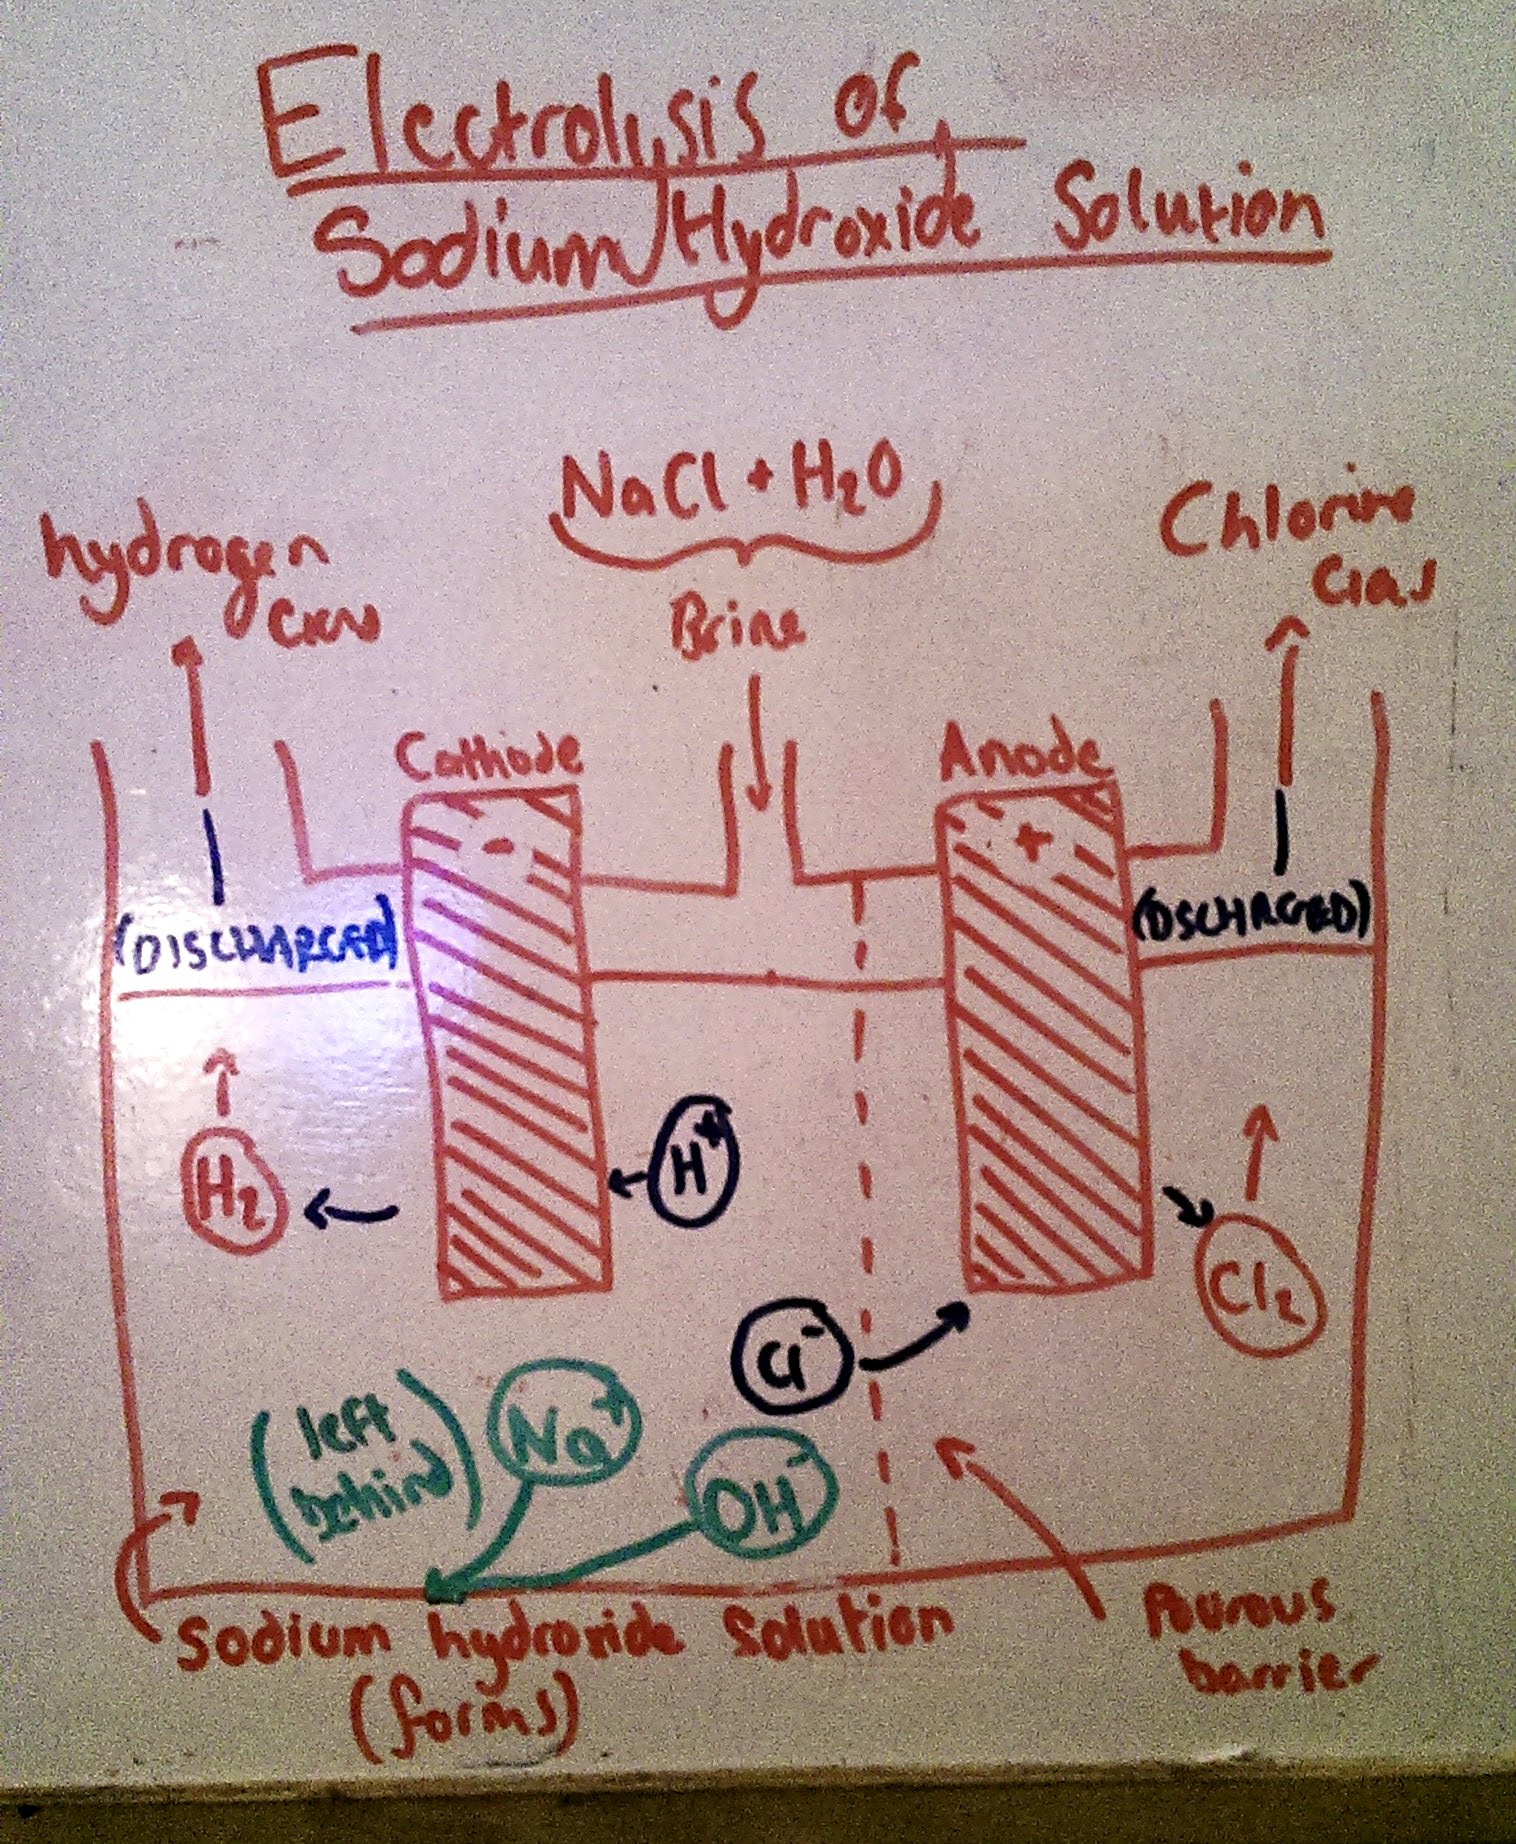 Electrolysis of
Sodium Hydroxide Solution
NaCl + H₂O
Brine
hydrogen
Gas
Chlorine
Gas
Cathode
-
Anode
+
(DISCHARGED)
(DSCHARGED)
H₂
H⁺
Cl₂
Cl⁻
(left
behind)
Na⁺
OH⁻
Sodium hydroxide Solution
(forms)
Pourous
barrier